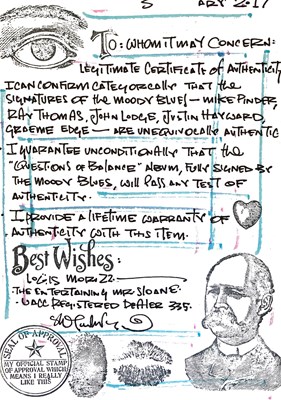 ARY 2.17
To: WHOM IT MAY CONCERN:
LEGITIMATE CERTIFICATE OF AUTHENTICITY
I CAN CONFIRM CATEGORICALLY THAT THE
SIGNATURES OF THE MOODY BLUES — MIKE PINDER,
RAY THOMAS, JOHN LODGE, JUSTIN HAYWARD,
GRAEME EDGE — ARE UNEQUIVOCALLY AUTHENTIC
I GUARANTEE UNCONDITIONALLY THAT THE
"QUESTIONS OF BALANCE" ALBUM, FULLY SIGNED BY
THE MOODY BLUES, WILL PASS ANY TEST OF
AUTHENTICITY.
I PROVIDE A LIFETIME WARRANTY OF
AUTHENTICITY WITH THIS ITEM.
Best Wishes:
THE ENTERTAINING MR SLOANE.
UACC REGISTERED DEALER 335.
SEAL OF APPROVAL
MY OFFICIAL STAMP
OF APPROVAL WHICH
MEANS I REALLY
LIKE THIS